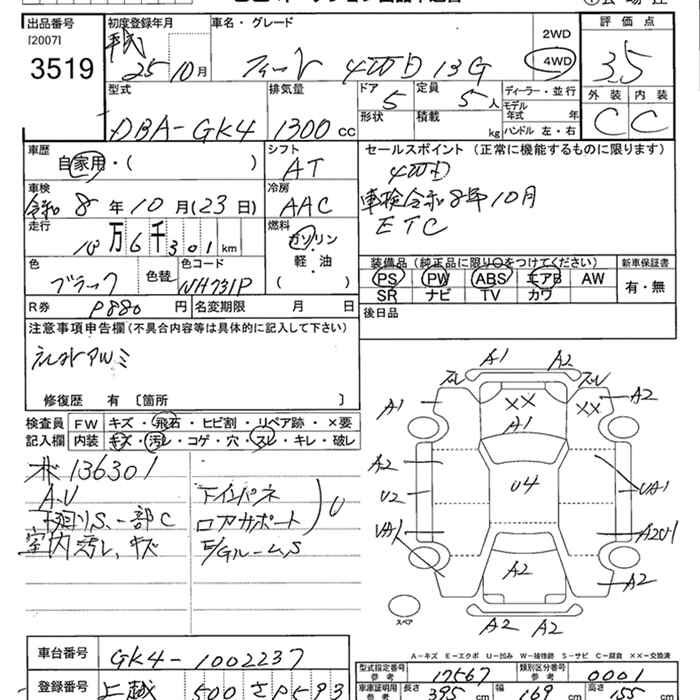 出品番号 初度登録年月 車名・グレード 評価点
[2007] 平成 2WD
3519 25 10月 フィット 4WD 13G 4WD 3.5
型式 排気量 ドア 定員 ディーラー・並行 外装 内装
5 5人 モデル年式 年
DBA-GK4 1300cc 形状 積載 kg ハンドル 左・右 C C
車歴 シフト セールスポイント (正常に機能するものに限ります)
自家用・( ) AT 4WD
車検 冷房 車検令和8年10月
令和 8年10月(23日) AAC ETC
走行 燃料
13万6千301km ガソリン 装備品 (純正品に限り○をつけてください) 新車保証書
軽・油 PS PW ABS エアB AW 有・無
色 色替 色コード ( ) SR ナビ TV カワ
ブラック NH731P
R券 円 名変期限 月 日 後日品
注意事項申告欄 (不具合内容等は具体的に記入して下さい)
修復歴 有 〔箇所 〕
検査員 FW キズ・飛石・ヒビ割・リペア跡・×要
記入欄 内装 キズ・汚レ・コゲ・穴・スレ・キレ・破レ
136301
A.U
下廻りS、一部C
室内汚レ、キズ
ロアサポート U
E/GルームS
A1 A2
A1 XX A1 XX A2
A2
U2 U4 UA1
UA1
A2 A2
A2 A2
スペア
A-キズ E-エクボ U-凹み W-補修跡 S-サビ C-腐食 XX-交換済
車台番号 GK4-1002237
型式指定番号 参考 17567 類別区分番号 参考 0001
登録番号 上越 500 さ
車庫証明用 参考 長さ 395cm 幅 169cm 高さ 155cm